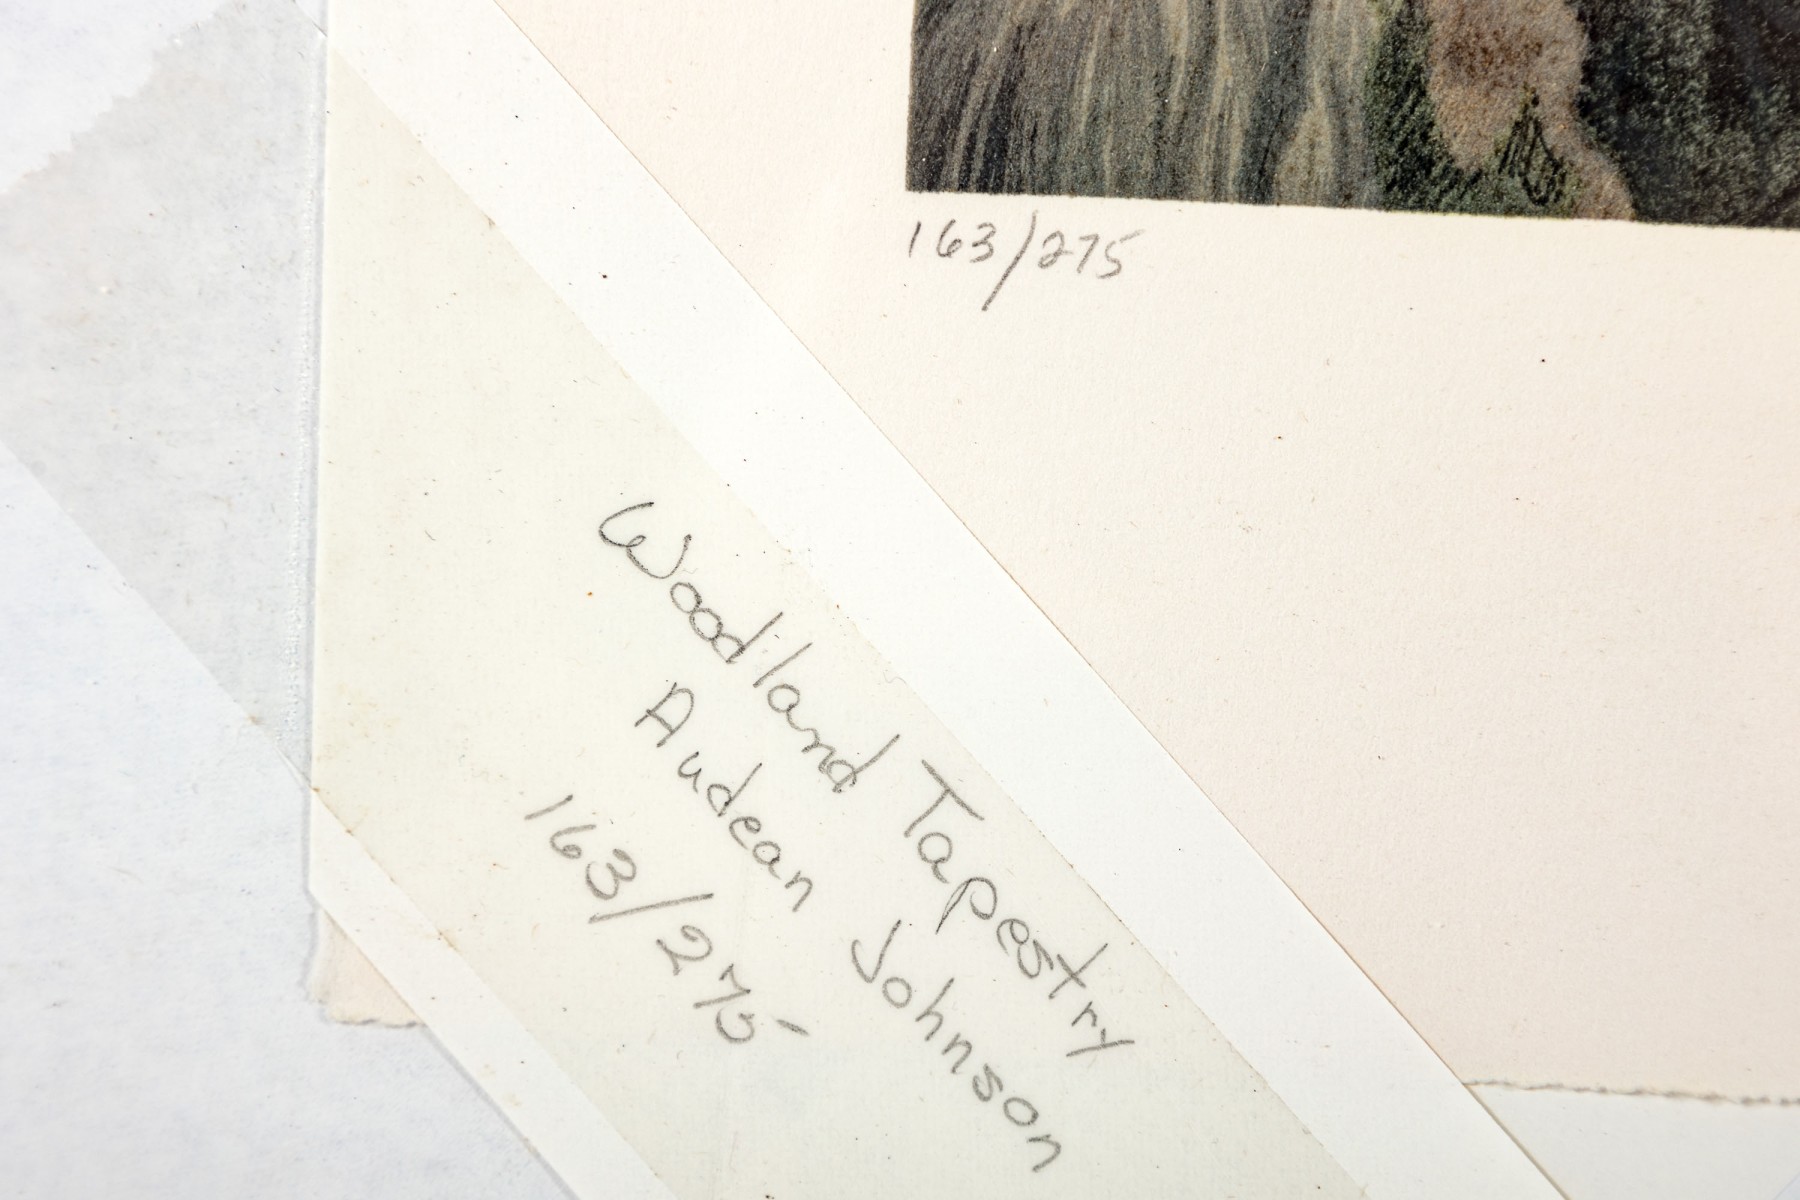 163/275
Woodland Tapestry
Audean Johnson
163/275